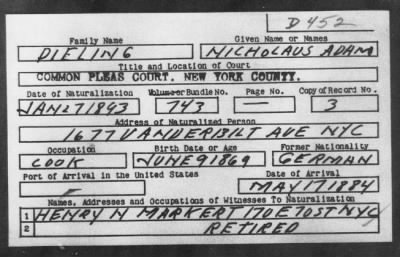 D 452
Family Name Given Name or Names
DIELING NICHOLAUS ADAM
Title and Location of Court
COMMON PLEAS COURT. NEW YORK COUNTY.
Date of Naturalization Volume or Bundle No. Page No. Copy of Record No.
JAN 27 1893 743 — 3
Address of Naturalized Person
1677 VANDERBILT AVE NYC
Occupation Birth Date or Age Former Nationality
COOK JUNE 9 1869 GERMAN
Port of Arrival in the United States Date of Arrival
MAY 17 1884
Names, Addresses and Occupations of Witnesses To Naturalization
1 HENRY N MARKERT 170 E 70 ST NYC
2 RETIRED